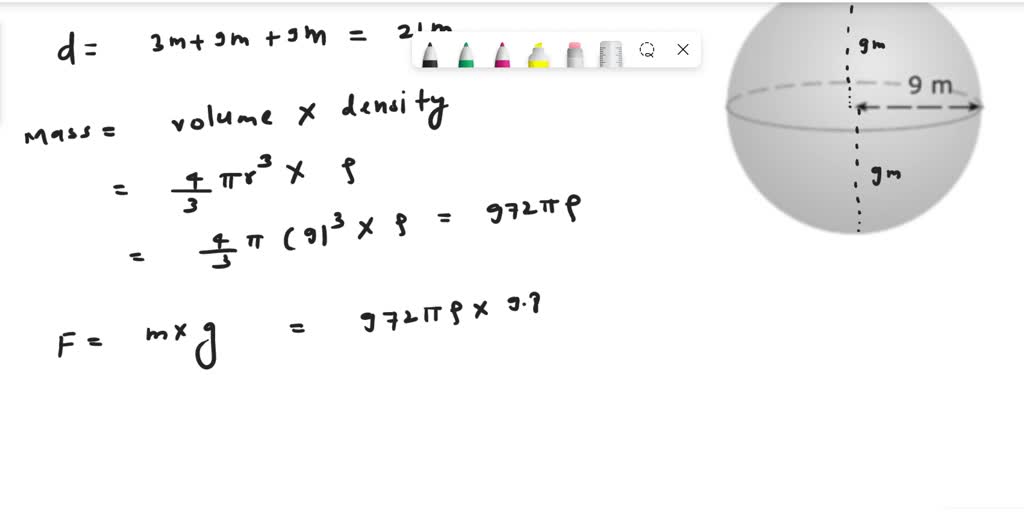 d = 3m + 9m + 9m = 21m
9m
9 m
9m
Mass = volume × density
= 4/3 πr³ × ρ
= 4/3 π (9)³ × ρ = 972πρ
F = m × g = 972πρ × 9.8